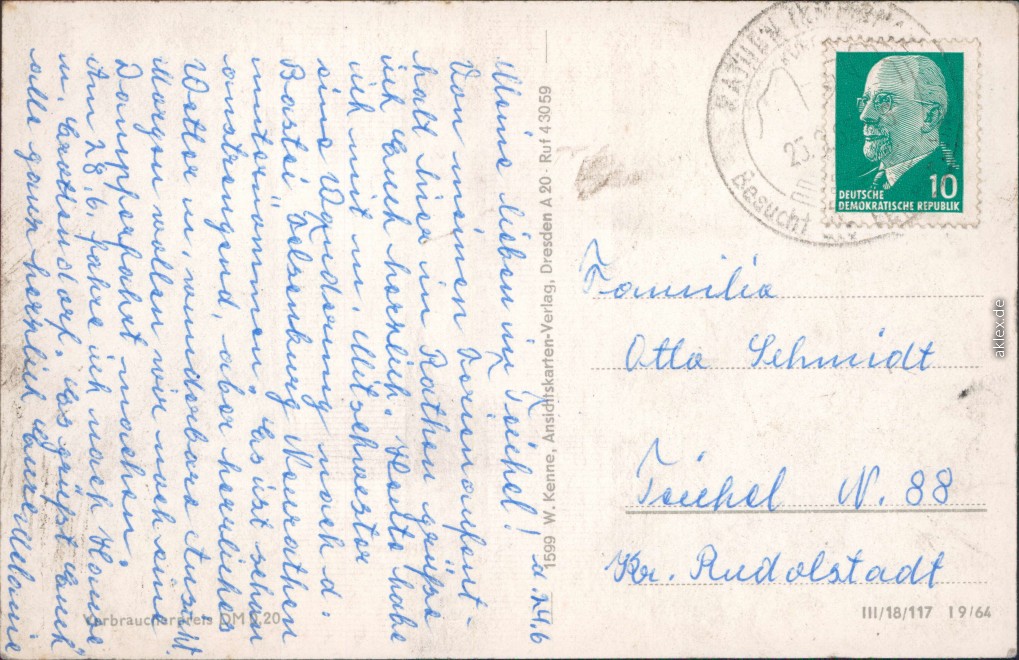 Meine Lieben in Teichel! d. 24.6
Von meinen Ferienaufent-
halt hier in Rathen grüßt
ich Euch herzlich. Heute habe
ich mit m. Mitschwester
eine Wanderung nach d.
Bastei Felsenburg Neurathen
unternommen. Es ist schon
anstrengend, aber herrliches
Wetter u. wunderbare Aussicht.
Morgen wollen wir noch eine
Dampferfahrt machen.
Am 28.6. fahre ich nach Hause
n.
Es grüßt Euch
alle ganz herzlich Eure Melanie
1599 W. Kenne, Ansichtskarten-Verlag, Dresden A 20 · Ruf 43059
Verbraucherpreis DM 0,20
RATHEN
25.
Besucht
10
DEUTSCHE
DEMOKRATISCHE REPUBLIK
Familie
Otto Schmidt
Teichel N. 88
Kr. Rudolstadt
III/18/117 I 9/64
aklex.de